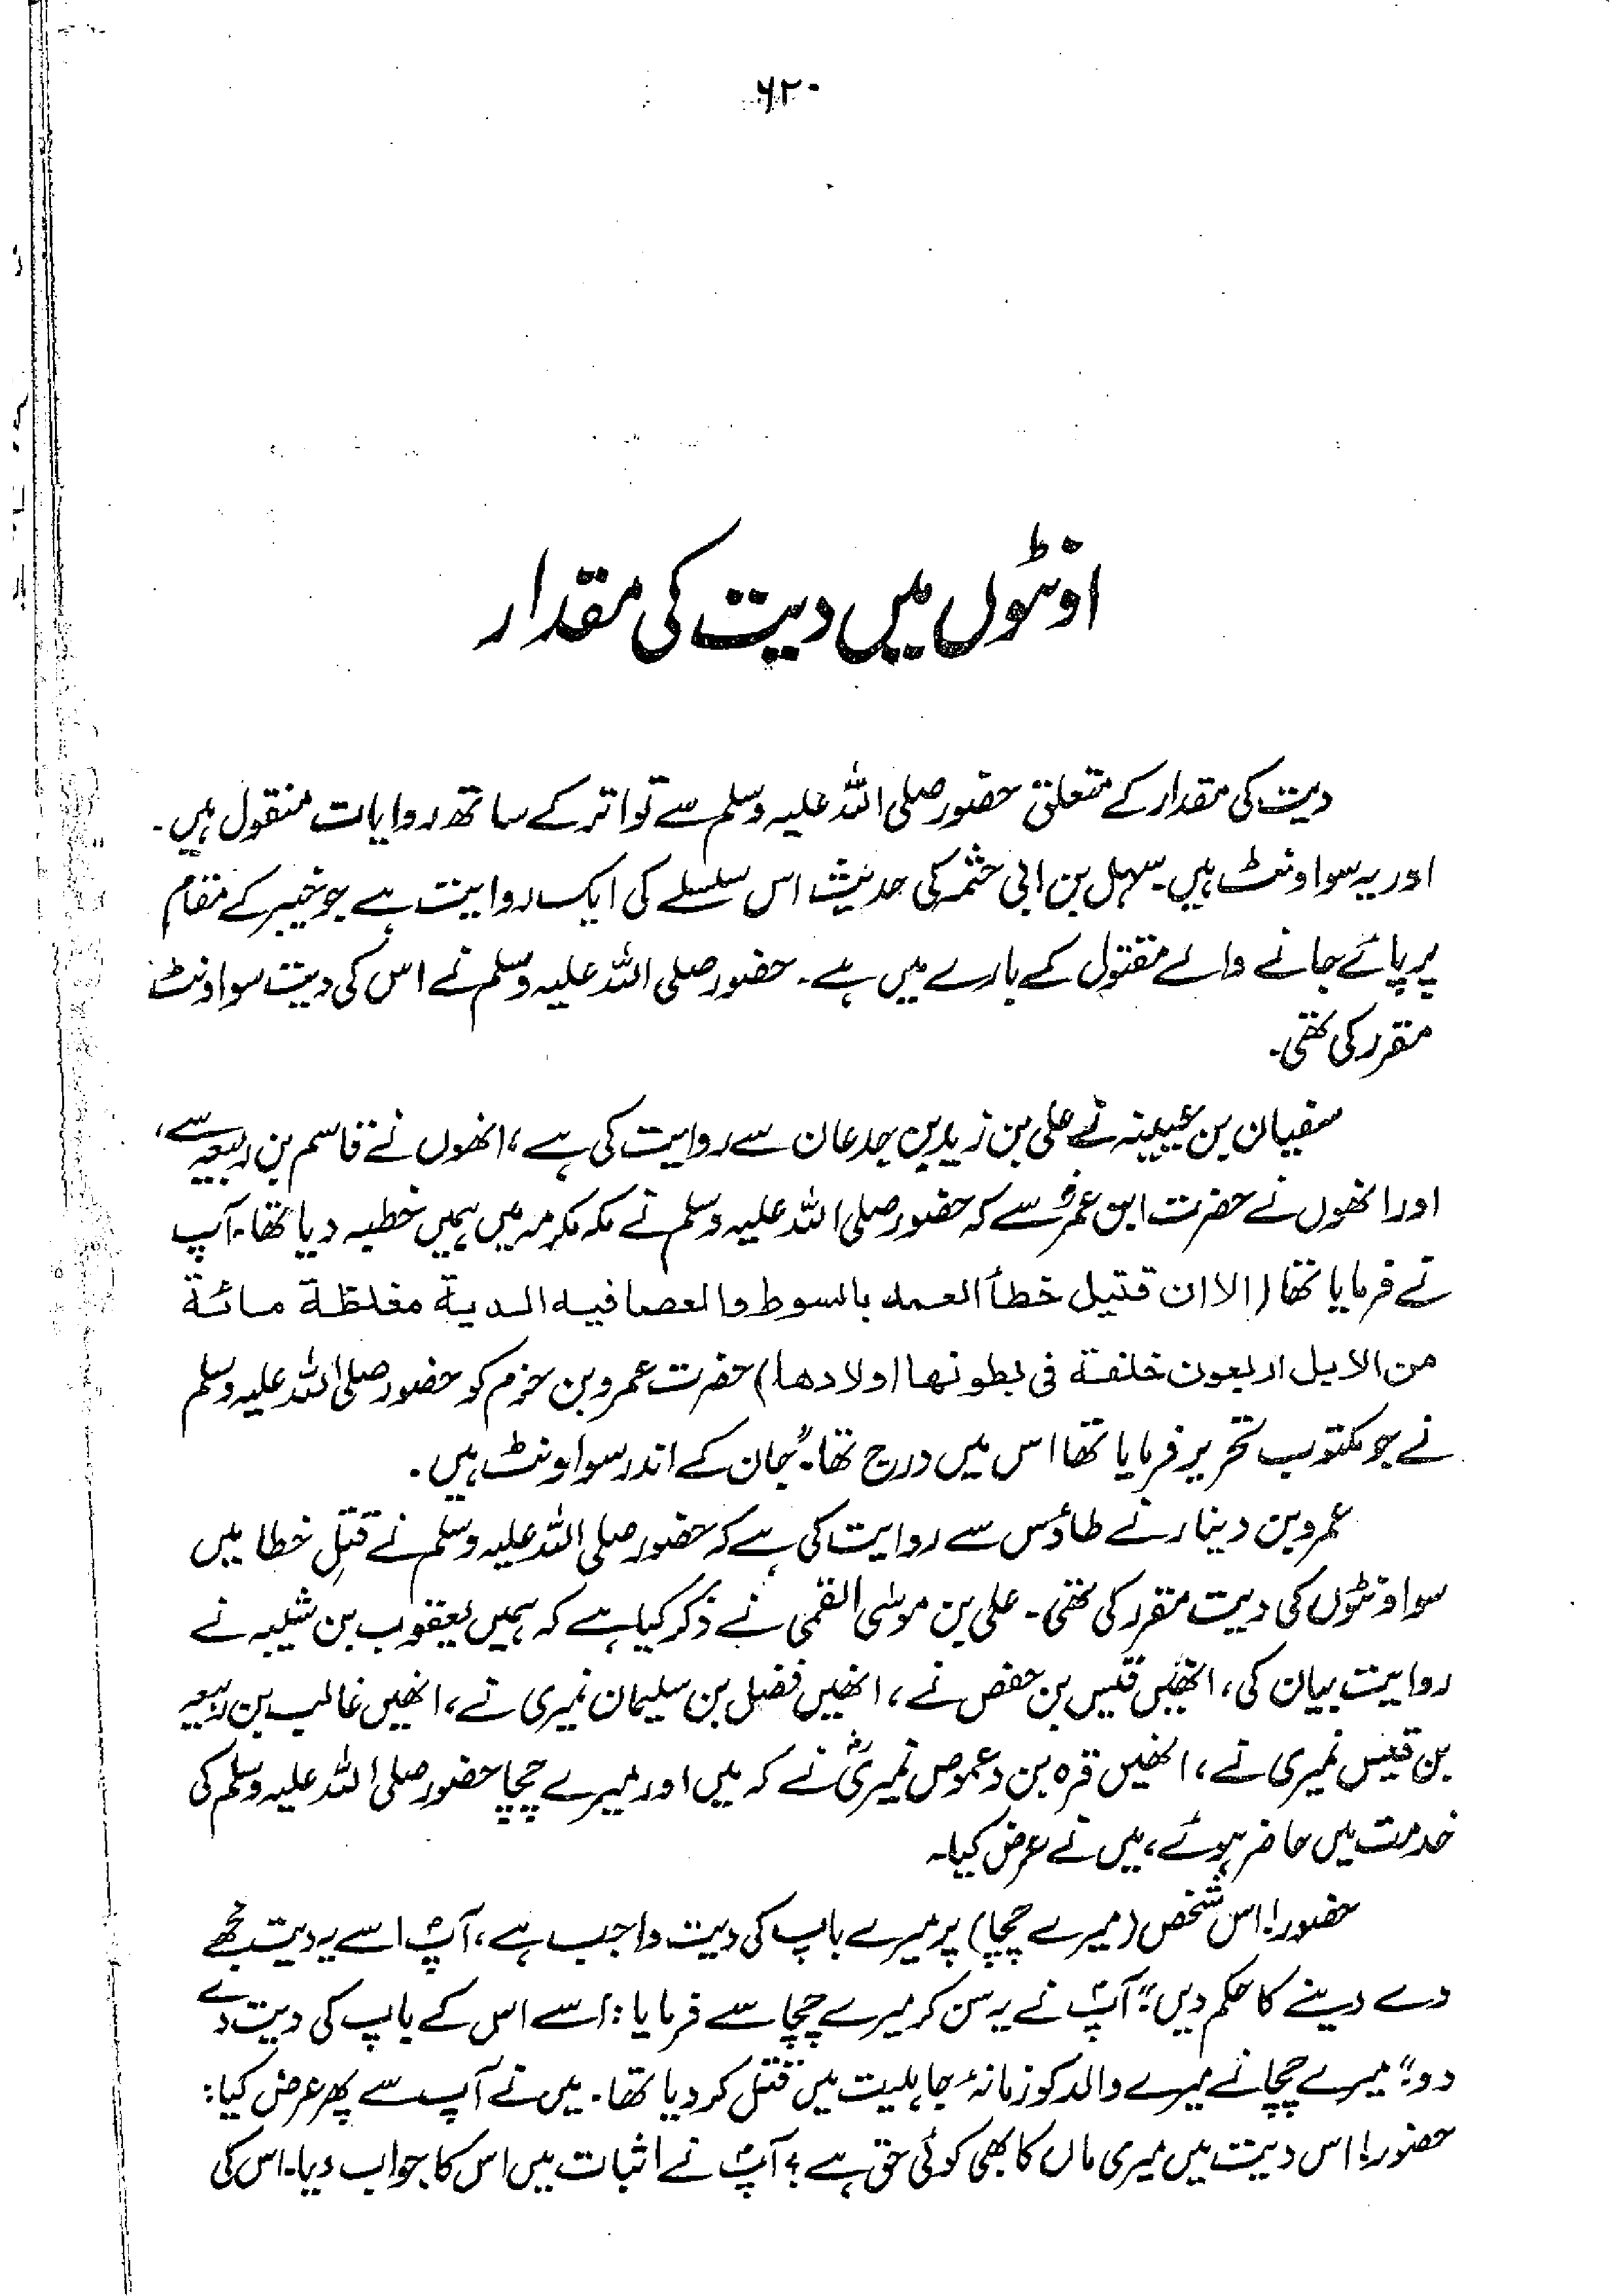 ۶۲۰
اونٹوں میں دیت کی مقدار
دیت کی مقدار کے متعلق حضور صلی اللہ علیہ وسلم سے تواتر کے ساتھ روایات منقول ہیں۔
اور یہ سو اونٹ ہیں۔ سہل بن ابی حثمہ کی حدیث اس سلسلے کی ایک روایت ہے جو خیبر کے مقام
پر پائے جانے والے مقتول کے بارے میں ہے۔ حضور صلی اللہ علیہ وسلم نے اس کی دیت سو اونٹ
مقرر کی تھی۔
سفیان بن عیینہ نے علی بن زید بن جدعان سے روایت کی ہے، انھوں نے قاسم بن ربیعہ سے،
اور انھوں نے حضرت ابن عمرؓ سے کہ حضور صلی اللہ علیہ وسلم نے مکہ مکرمہ میں ہمیں خطبہ دیا تھا۔ آپ
نے فرمایا تھا (الا ان قتیل خطأ العمد بالسوط والعصا فیہ الدیۃ مغلظۃ مائۃ
من الابل اربعون خلفۃ فی بطونھا اولادھا) حضرت عمرو بن حزم کو حضور صلی اللہ علیہ وسلم
نے جو مکتوب تحریر فرمایا تھا اس میں درج تھا۔ "جان کے اندر سو اونٹ ہیں۔
عمرو بن دینار نے طاؤس سے روایت کی ہے کہ حضور صلی اللہ علیہ وسلم نے قتلِ خطا میں
سو اونٹوں کی دیت مقرر کی تھی۔ علی بن موسٰی القمی نے ذکر کیا ہے کہ ہمیں یعقوب بن شیبہ نے
روایت بیان کی، انھیں قیس بن حفص نے، انھیں فضل بن سلیمان نمیری نے، انھیں غالب بن ربیعہ
بن قیس نمیری نے، انھیں قرہ بن دعموص نمیریؓ نے کہ میں اور میرے چچا حضور صلی اللہ علیہ وسلم کی
خدمت میں حاضر ہوئے، میں نے عرض کیا۔
حضور! اس شخص (میرے چچا) پر میرے باپ کی دیت واجب ہے، آپؐ اسے یہ دیت مجھے
دے دینے کا حکم دیں" آپؐ نے یہ سن کر میرے چچا سے فرمایا: اسے اس کے باپ کی دیت دے
دو" میرے چچا نے میرے والد کو زمانۂ جاہلیت میں قتل کر دیا تھا۔ میں نے آپ سے پھر عرض کیا:
حضور! اس دیت میں میری ماں کا بھی کوئی حق ہے؟ آپؐ نے اثبات میں اس کا جواب دیا۔ اس کی